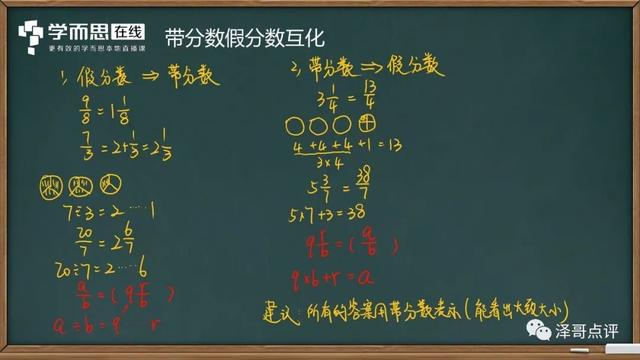 学而思在线
更有效的学而思本地直播课
带分数假分数互化
1, 假分数 ⇒ 带分数
9/8 = 1 1/8
7/3 = 2 + 1/3 = 2 1/3
7÷3=2……1
20/7 = 2 6/7
20÷7=2……6
a/b = (q r/b)
a÷b=q……r
2, 带分数 ⇒ 假分数
3 1/4 = 13/4
4+4+4+1=13
3×4
5 3/7 = 38/7
5×7+3=38
q r/b = (a/b)
q×b+r=a
建议:所有的答案用带分数表示(能看出大致大小)
泽哥点评